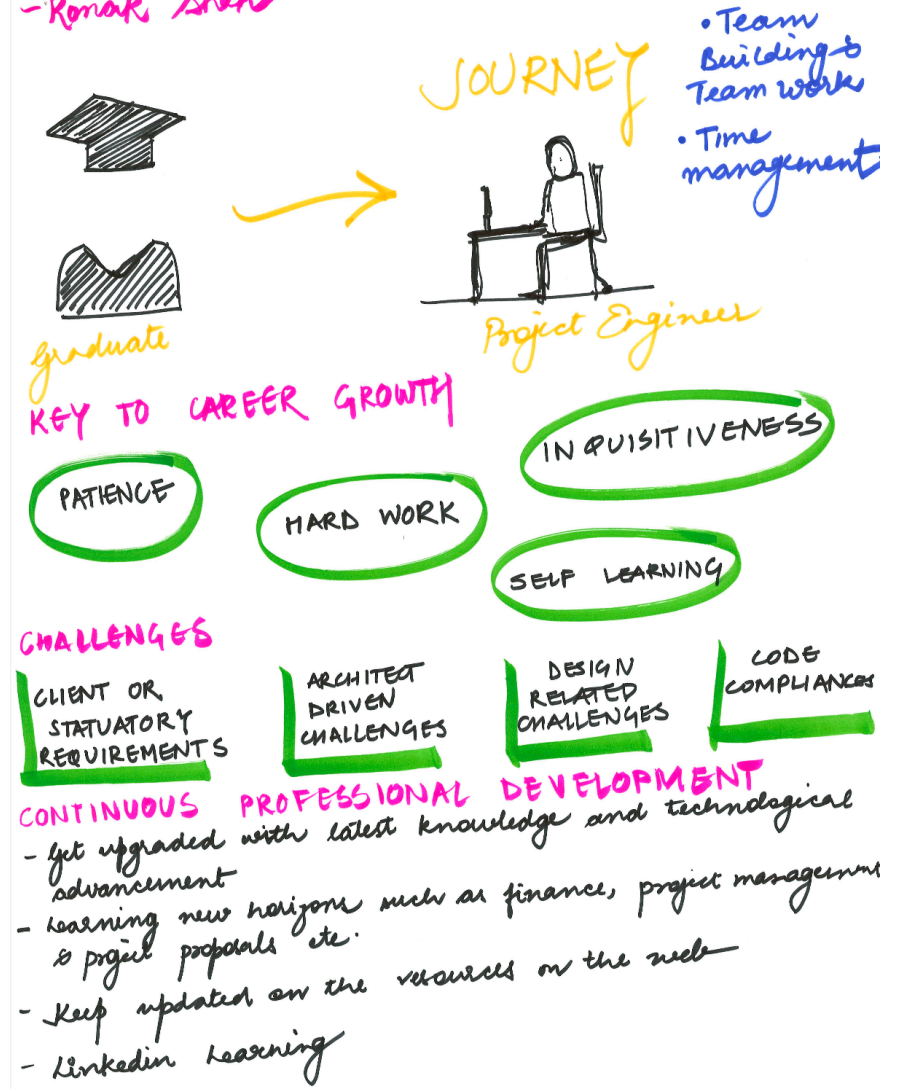 - Ronak Shah
JOURNEY
• Team
Building &
Team work
• Time
management
Graduate
Project Engineer
KEY TO CAREER GROWTH
PATIENCE
HARD WORK
INQUISITIVENESS
SELF LEARNING
CHALLENGES
CLIENT OR
STATUATORY
REQUIREMENTS
ARCHITECT
DRIVEN
CHALLENGES
DESIGN
RELATED
CHALLENGES
CODE
COMPLIANCES
CONTINUOUS PROFESSIONAL DEVELOPMENT
- Get upgraded with latest knowledge and technological
advancement
- Learning new horizons such as finance, project management
& project proposals etc.
- Keep updated on the resources on the web
- Linkedin Learning